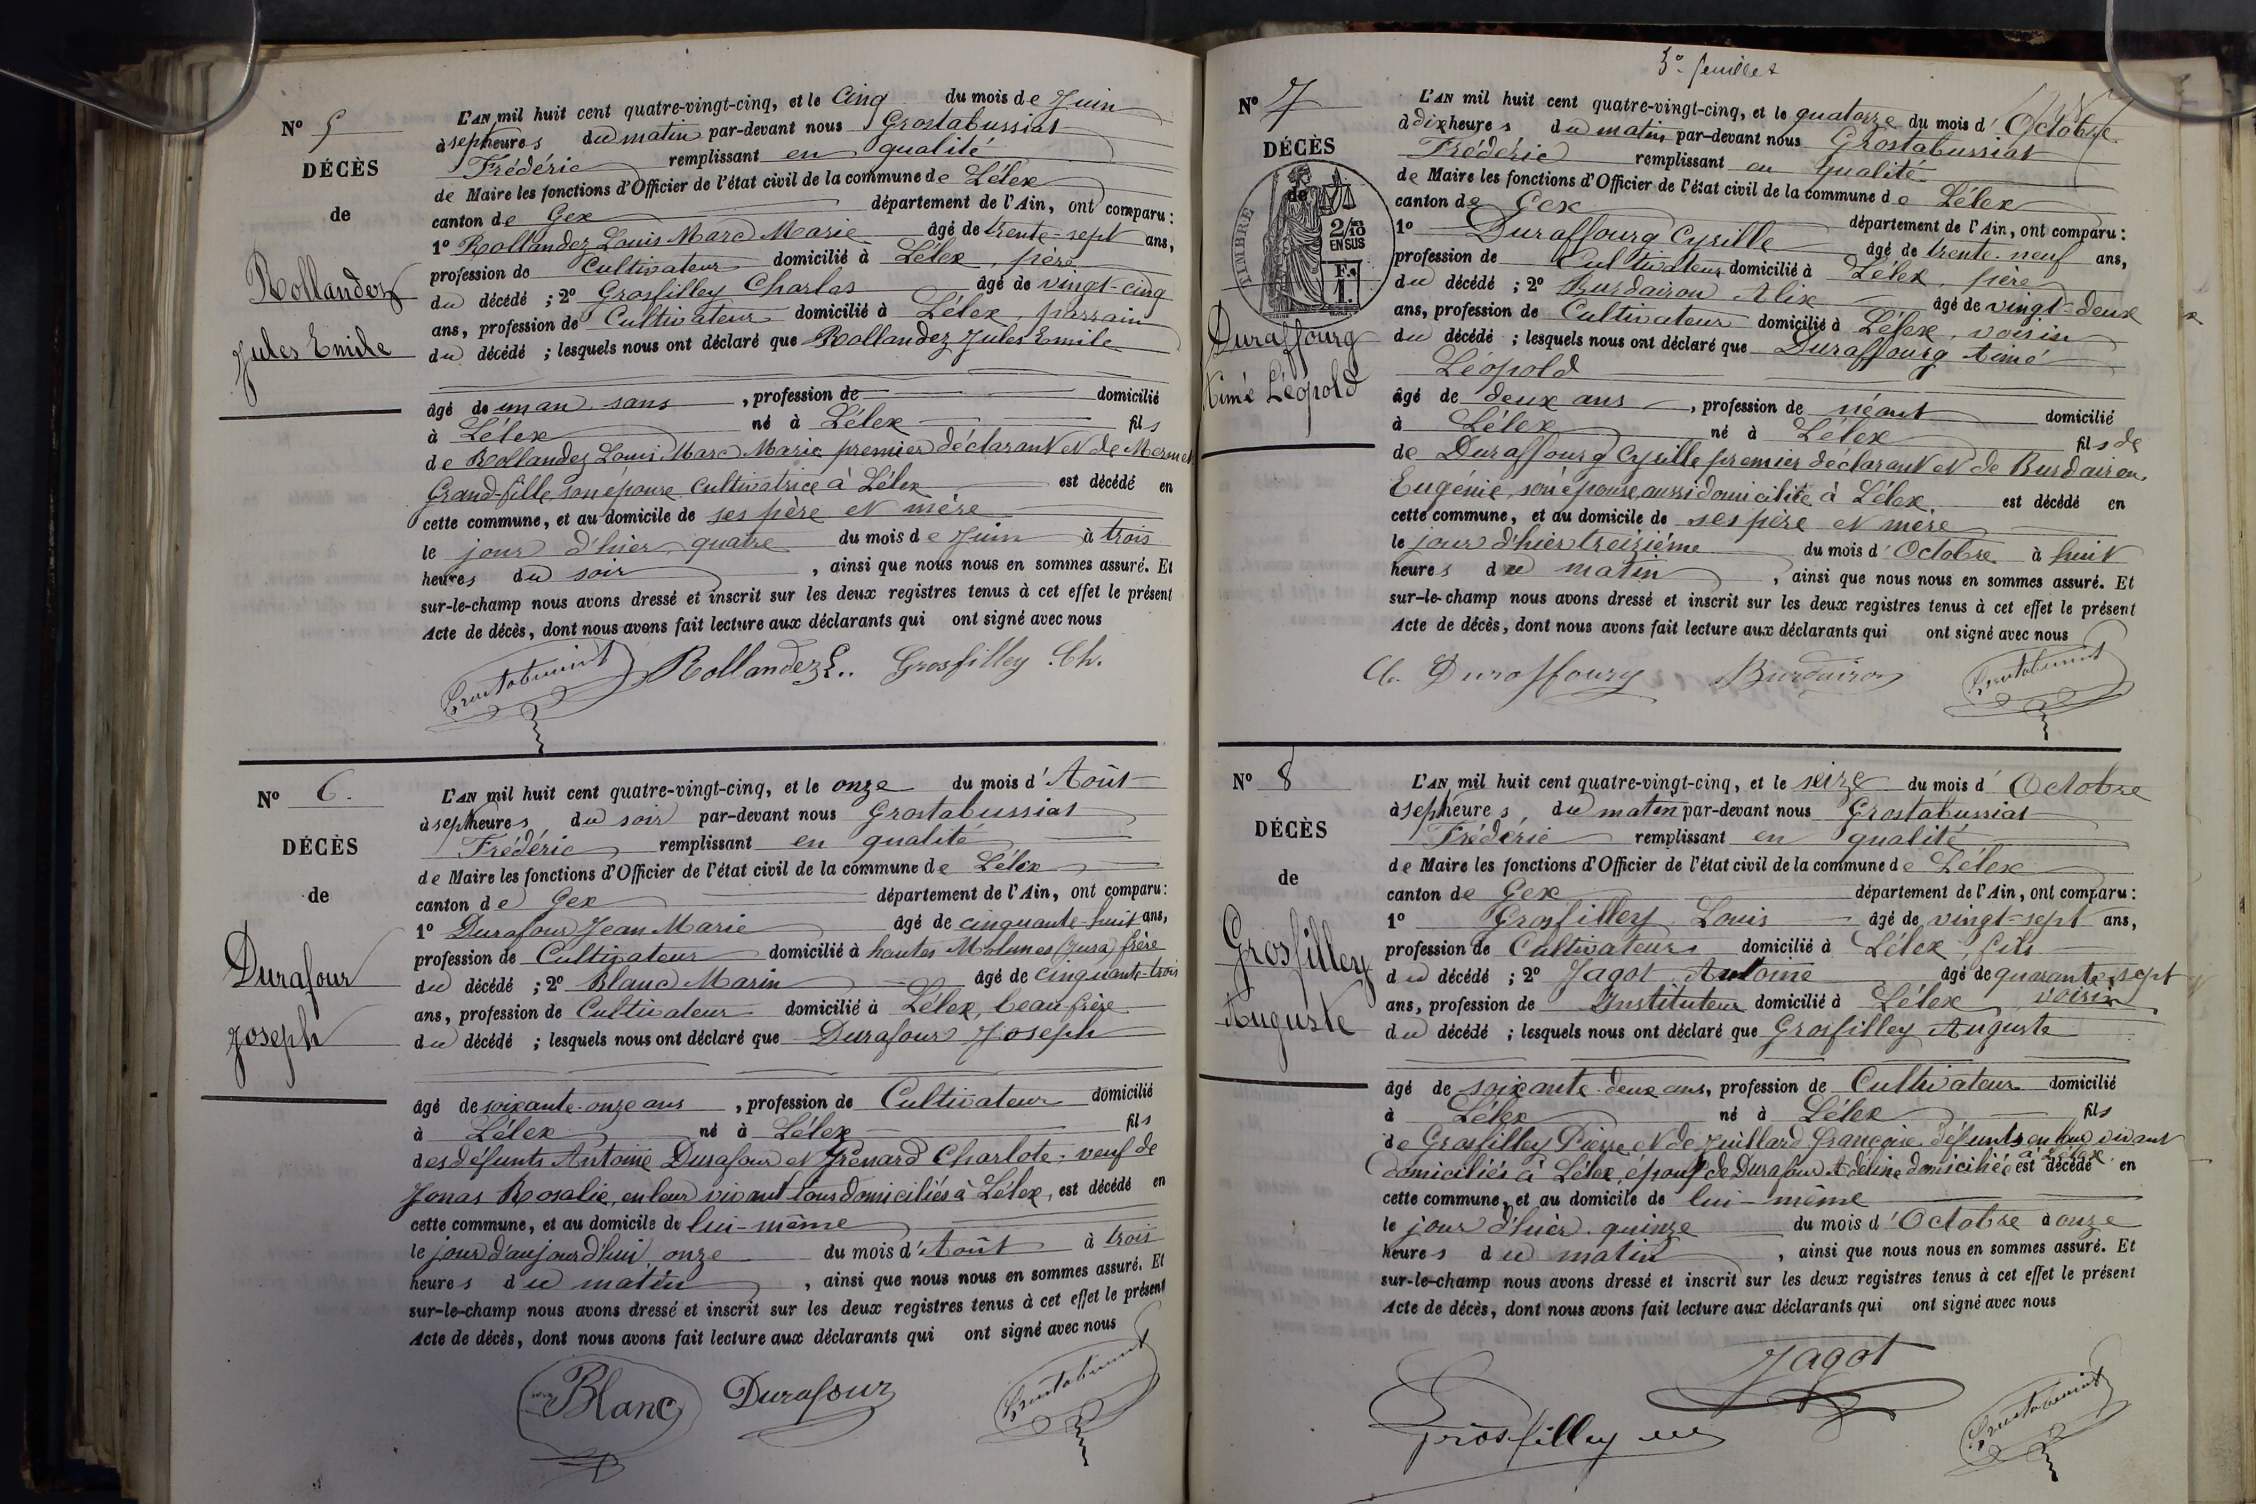 Nº 5
DÉCÈS
de
Rollandez
Jules Emile
L'AN mil huit cent quatre-vingt-cinq, et le Cinq du mois de Juin
à sept heures du matin par-devant nous Grostabussiat
Frédéric remplissant en qualité
de Maire les fonctions d'Officier de l'état civil de la commune de Lélex
canton de Gex département de l'Ain, ont comparu :
1º Rollandez Louis Marc Marie âgé de trente-sept ans,
profession de Cultivateur domicilié à Lélex, père
du décédé ; 2º Grosfilley Charles âgé de vingt-cinq
ans, profession de Cultivateur domicilié à Lélex, parrain
du décédé ; lesquels nous ont déclaré que Rollandez Jules Emile
âgé de un an, sans , profession de domicilié
à Lélex né à Lélex fils
de Rollandez Louis Marc Marie premier déclarant et de Mermet
Grand-fille, son épouse, cultivatrice à Lélex est décédé en
cette commune, et au domicile de ses père et mère
le jour d'hier, quatre du mois de Juin à trois
heures du soir , ainsi que nous nous en sommes assuré. Et
sur-le-champ nous avons dressé et inscrit sur les deux registres tenus à cet effet le présent
Acte de décès, dont nous avons fait lecture aux déclarants qui ont signé avec nous
Grostabussiat Rollandez L.. Grosfilley Ch.
Nº 6.
DÉCÈS
de
Durafour
Joseph
L'AN mil huit cent quatre-vingt-cinq, et le onze du mois d'Août
à sept heures du soir par-devant nous Grostabussiat
Frédéric remplissant en qualité
de Maire les fonctions d'Officier de l'état civil de la commune de Lélex
canton de Gex département de l'Ain, ont comparu :
1º Durafour Jean Marie âgé de cinquante-huit ans,
profession de Cultivateur domicilié à hautes Molunes (Jura) frère
du décédé ; 2º Blanc Marin âgé de cinquante-trois
ans, profession de Cultivateur domicilié à Lélex, beau-frère
du décédé ; lesquels nous ont déclaré que Durafour Joseph
âgé de soixante-onze ans , profession de Cultivateur domicilié
à Lélex né à Lélex fils
des défunts Antoine Durafour et Grenard Charlote ; veuf de
Jonas Rosalie, en leur vivant tous domiciliés à Lélex, est décédé en
cette commune, et au domicile de lui-même
le jour d'aujourd'hui, onze du mois d'Août à trois
heures du matin , ainsi que nous nous en sommes assuré. Et
sur-le-champ nous avons dressé et inscrit sur les deux registres tenus à cet effet le présent
Acte de décès, dont nous avons fait lecture aux déclarants qui ont signé avec nous
Blanc Durafour Grostabussiat
3e feuillet
Nº 7
DÉCÈS
de
TIMBRE
2/10
EN SUS
F.
1.
Duraffourg
Aimé Léopold
L'AN mil huit cent quatre-vingt-cinq, et le quatorze du mois d'Octobre
à dix heures du matin, par-devant nous Grostabussiat
Frédéric remplissant en qualité
de Maire les fonctions d'Officier de l'état civil de la commune de Lélex
canton de Gex département de l'Ain, ont comparu :
1º Duraffourg Cyrille âgé de trente-neuf ans,
profession de Cultivateur domicilié à Lélex, père
du décédé ; 2º Burdairon Alix âgé de vingt-deux
ans, profession de Cultivateur domicilié à Lélex, voisin
du décédé ; lesquels nous ont déclaré que Duraffourg Aimé
Léopold
âgé de deux ans , profession de néant domicilié
à Lélex né à Lélex fils de
de Duraffourg Cyrille premier déclarant et de Burdairon
Eugénie, son épouse, aussi domicilié à Lélex, est décédé en
cette commune, et au domicile de ses père et mère
le jour d'hier treizième du mois d'Octobre à huit
heures du matin , ainsi que nous nous en sommes assuré. Et
sur-le-champ nous avons dressé et inscrit sur les deux registres tenus à cet effet le présent
Acte de décès, dont nous avons fait lecture aux déclarants qui ont signé avec nous
C. Duraffourg Burdairon Grostabussiat
Nº 8
DÉCÈS
de
Grosfilley
Auguste
L'AN mil huit cent quatre-vingt-cinq, et le seize du mois d'Octobre
à sept heures du matin par-devant nous Grostabussiat
Frédéric remplissant en qualité
de Maire les fonctions d'Officier de l'état civil de la commune de Lélex
canton de Gex département de l'Ain, ont comparu :
1º Grosfilley Louis âgé de vingt-sept ans,
profession de Cultivateur domicilié à Lélex, fils
du décédé ; 2º Jagot Antoine âgé de quarante-sept
ans, profession de Instituteur domicilié à Lélex voisin
du décédé ; lesquels nous ont déclaré que Grosfilley Auguste
âgé de soixante-deux ans, profession de Cultivateur domicilié
à Lélex né à Lélex fils
de Grosfilley Pierre et de Juillard Françoise, défunts en leur vivant
domiciliés à Lélex, époux de Durafour Adéline domiciliée à Lélex est décédé en
cette commune, et au domicile de lui-même
le jour d'hier, quinze du mois d'Octobre à onze
heures du matin , ainsi que nous nous en sommes assuré. Et
sur-le-champ nous avons dressé et inscrit sur les deux registres tenus à cet effet le présent
Acte de décès, dont nous avons fait lecture aux déclarants qui ont signé avec nous
Jagot
Grosfilley Grostabussiat